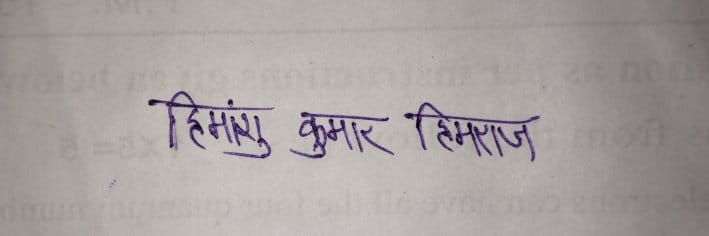 हिमांशु कुमार हिमराज